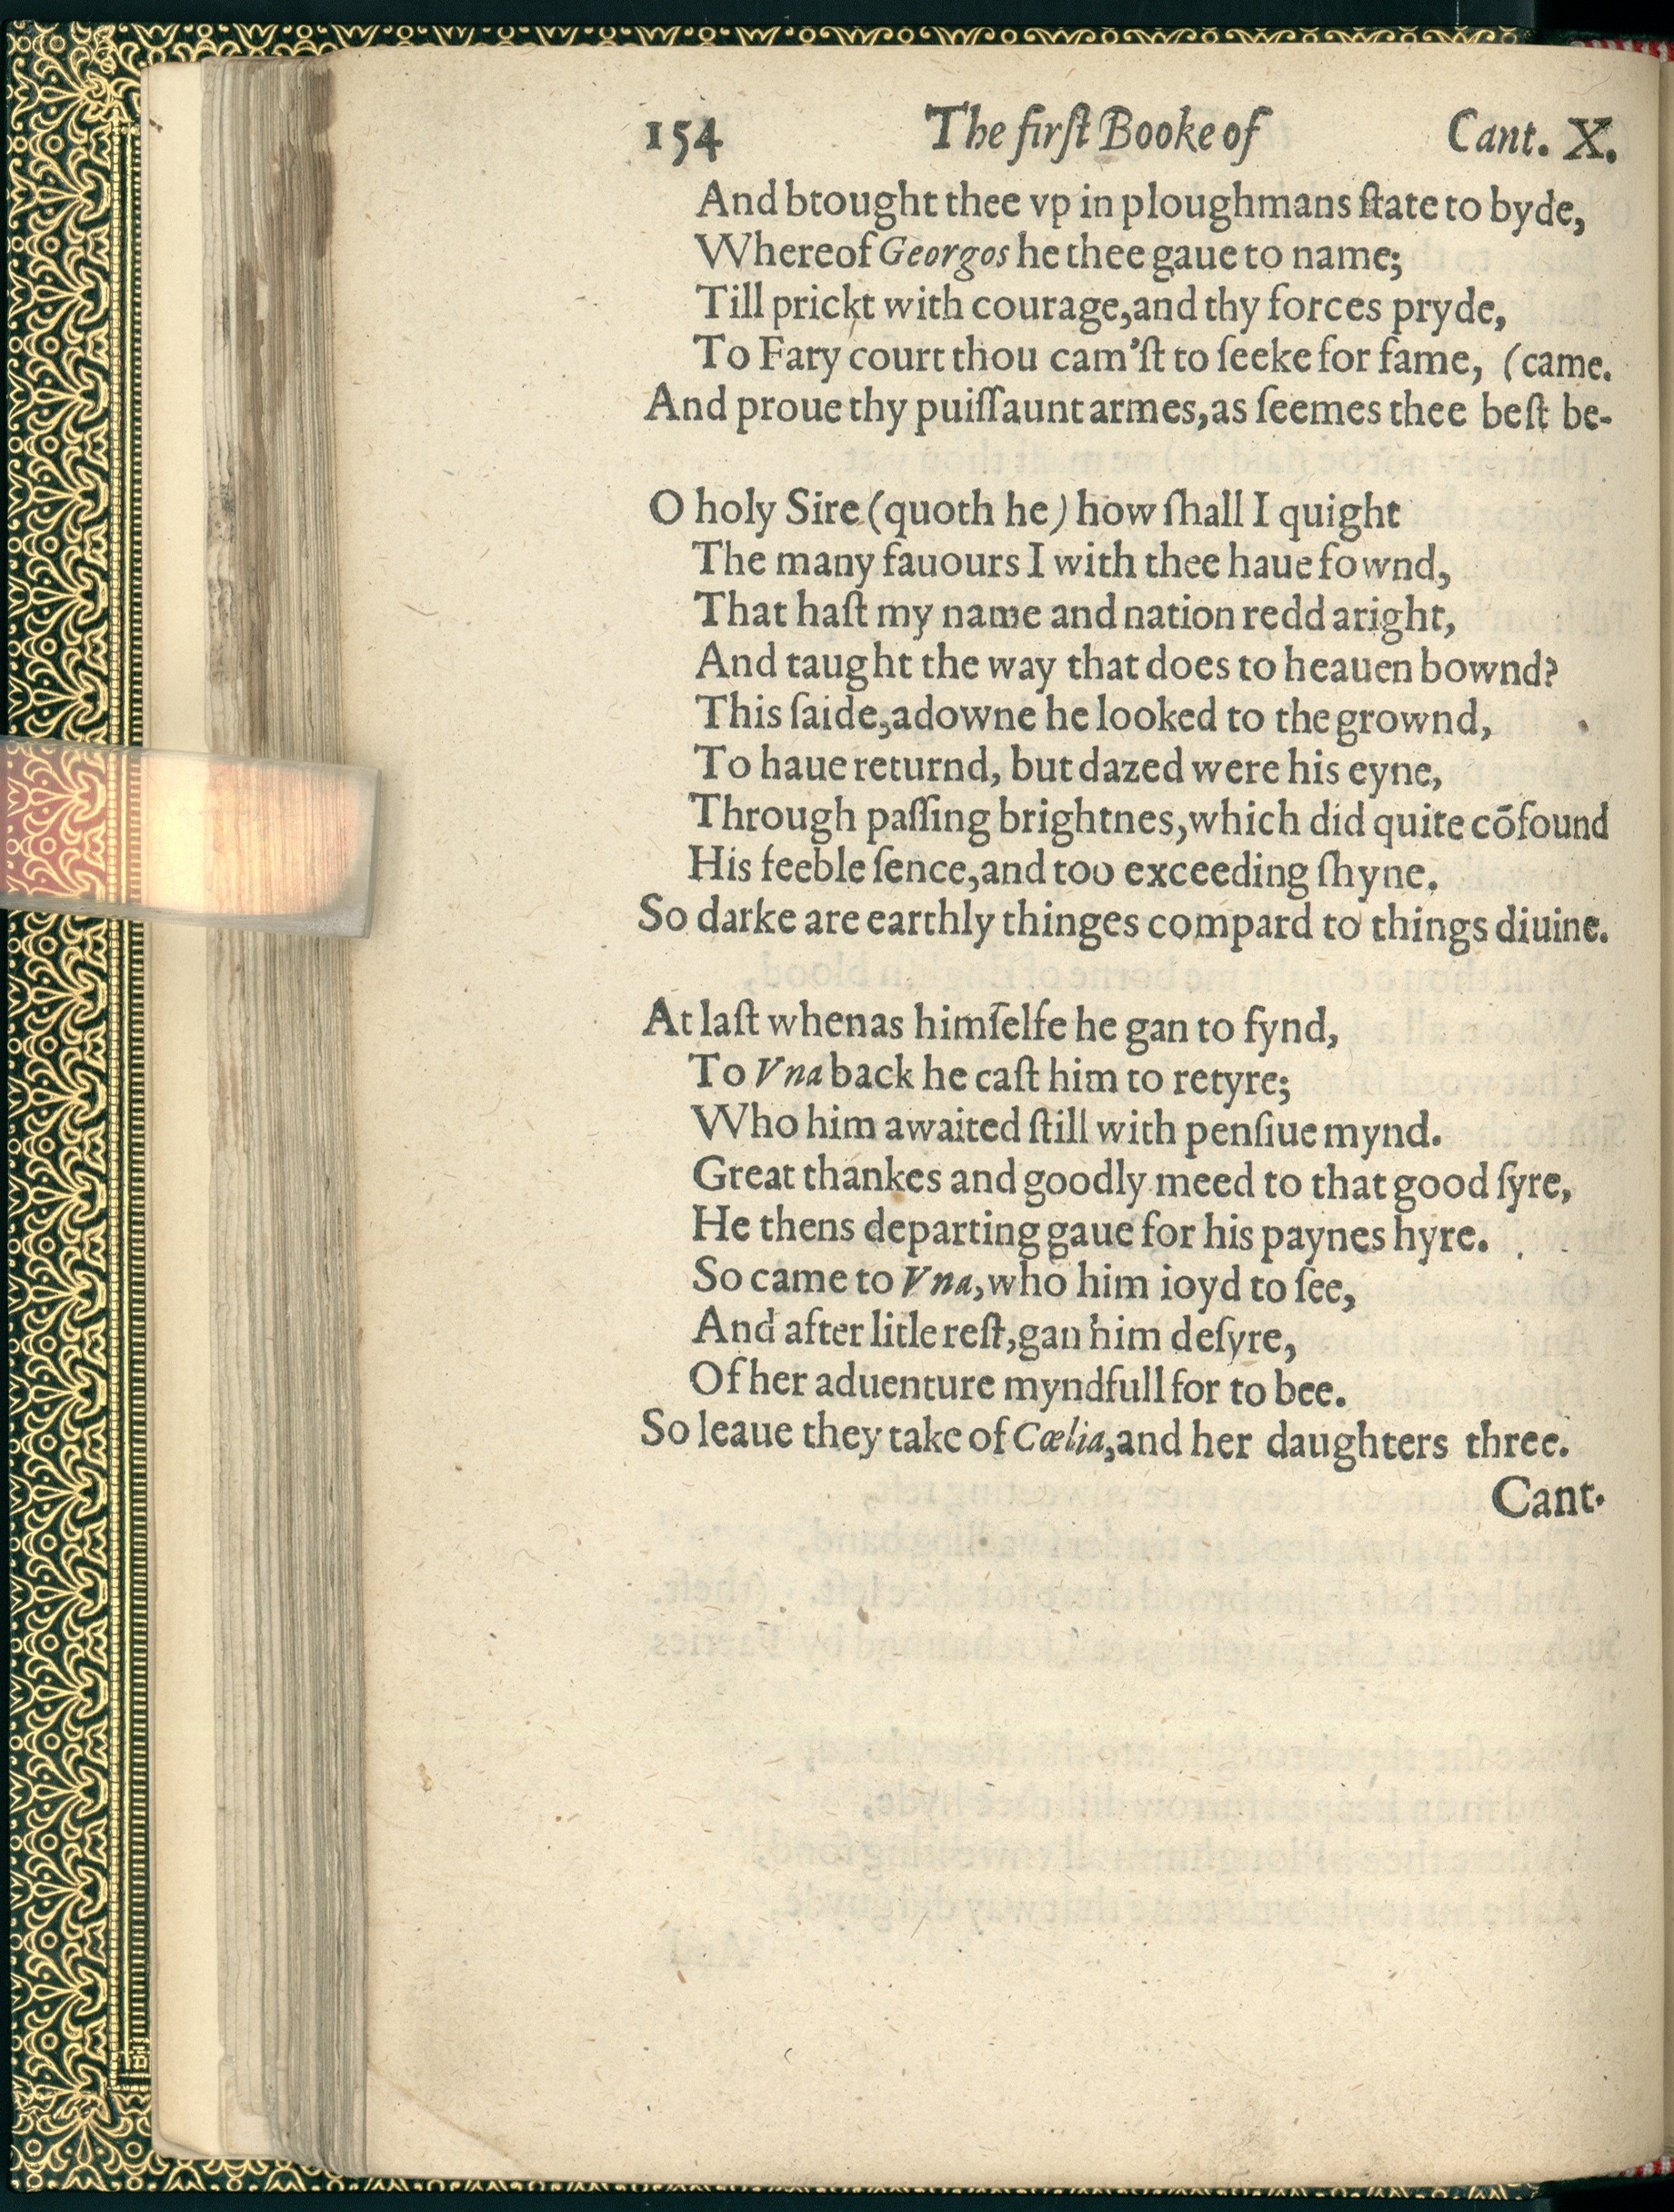 154 The firſt Booke of Cant. X.
And btought thee vp in ploughmans ſtate to byde,
Whereof Georgos he thee gaue to name;
Till prickt with courage,and thy forces pryde,
To Fary court thou cam'ſt to ſeeke for fame, (came.
And proue thy puiſſaunt armes,as ſeemes thee beſt be-
O holy Sire (quoth he) how ſhall I quight
The many fauours I with thee haue fownd,
That haſt my name and nation redd aright,
And taught the way that does to heauen bownd?
This ſaide,adowne he looked to the grownd,
To haue returnd, but dazed were his eyne,
Through paſſing brightnes,which did quite cōfound
His feeble ſence,and too exceeding ſhyne.
So darke are earthly thinges compard to things diuine.
At laſt whenas himſelfe he gan to fynd,
To Vna back he caſt him to retyre;
Who him awaited ſtill with penſiue mynd.
Great thankes and goodly meed to that good ſyre,
He thens departing gaue for his paynes hyre.
So came to Vna,who him ioyd to ſee,
And after litle reſt,gan him deſyre,
Of her aduenture myndfull for to bee.
So leaue they take of Cœlia,and her daughters three.
Cant.